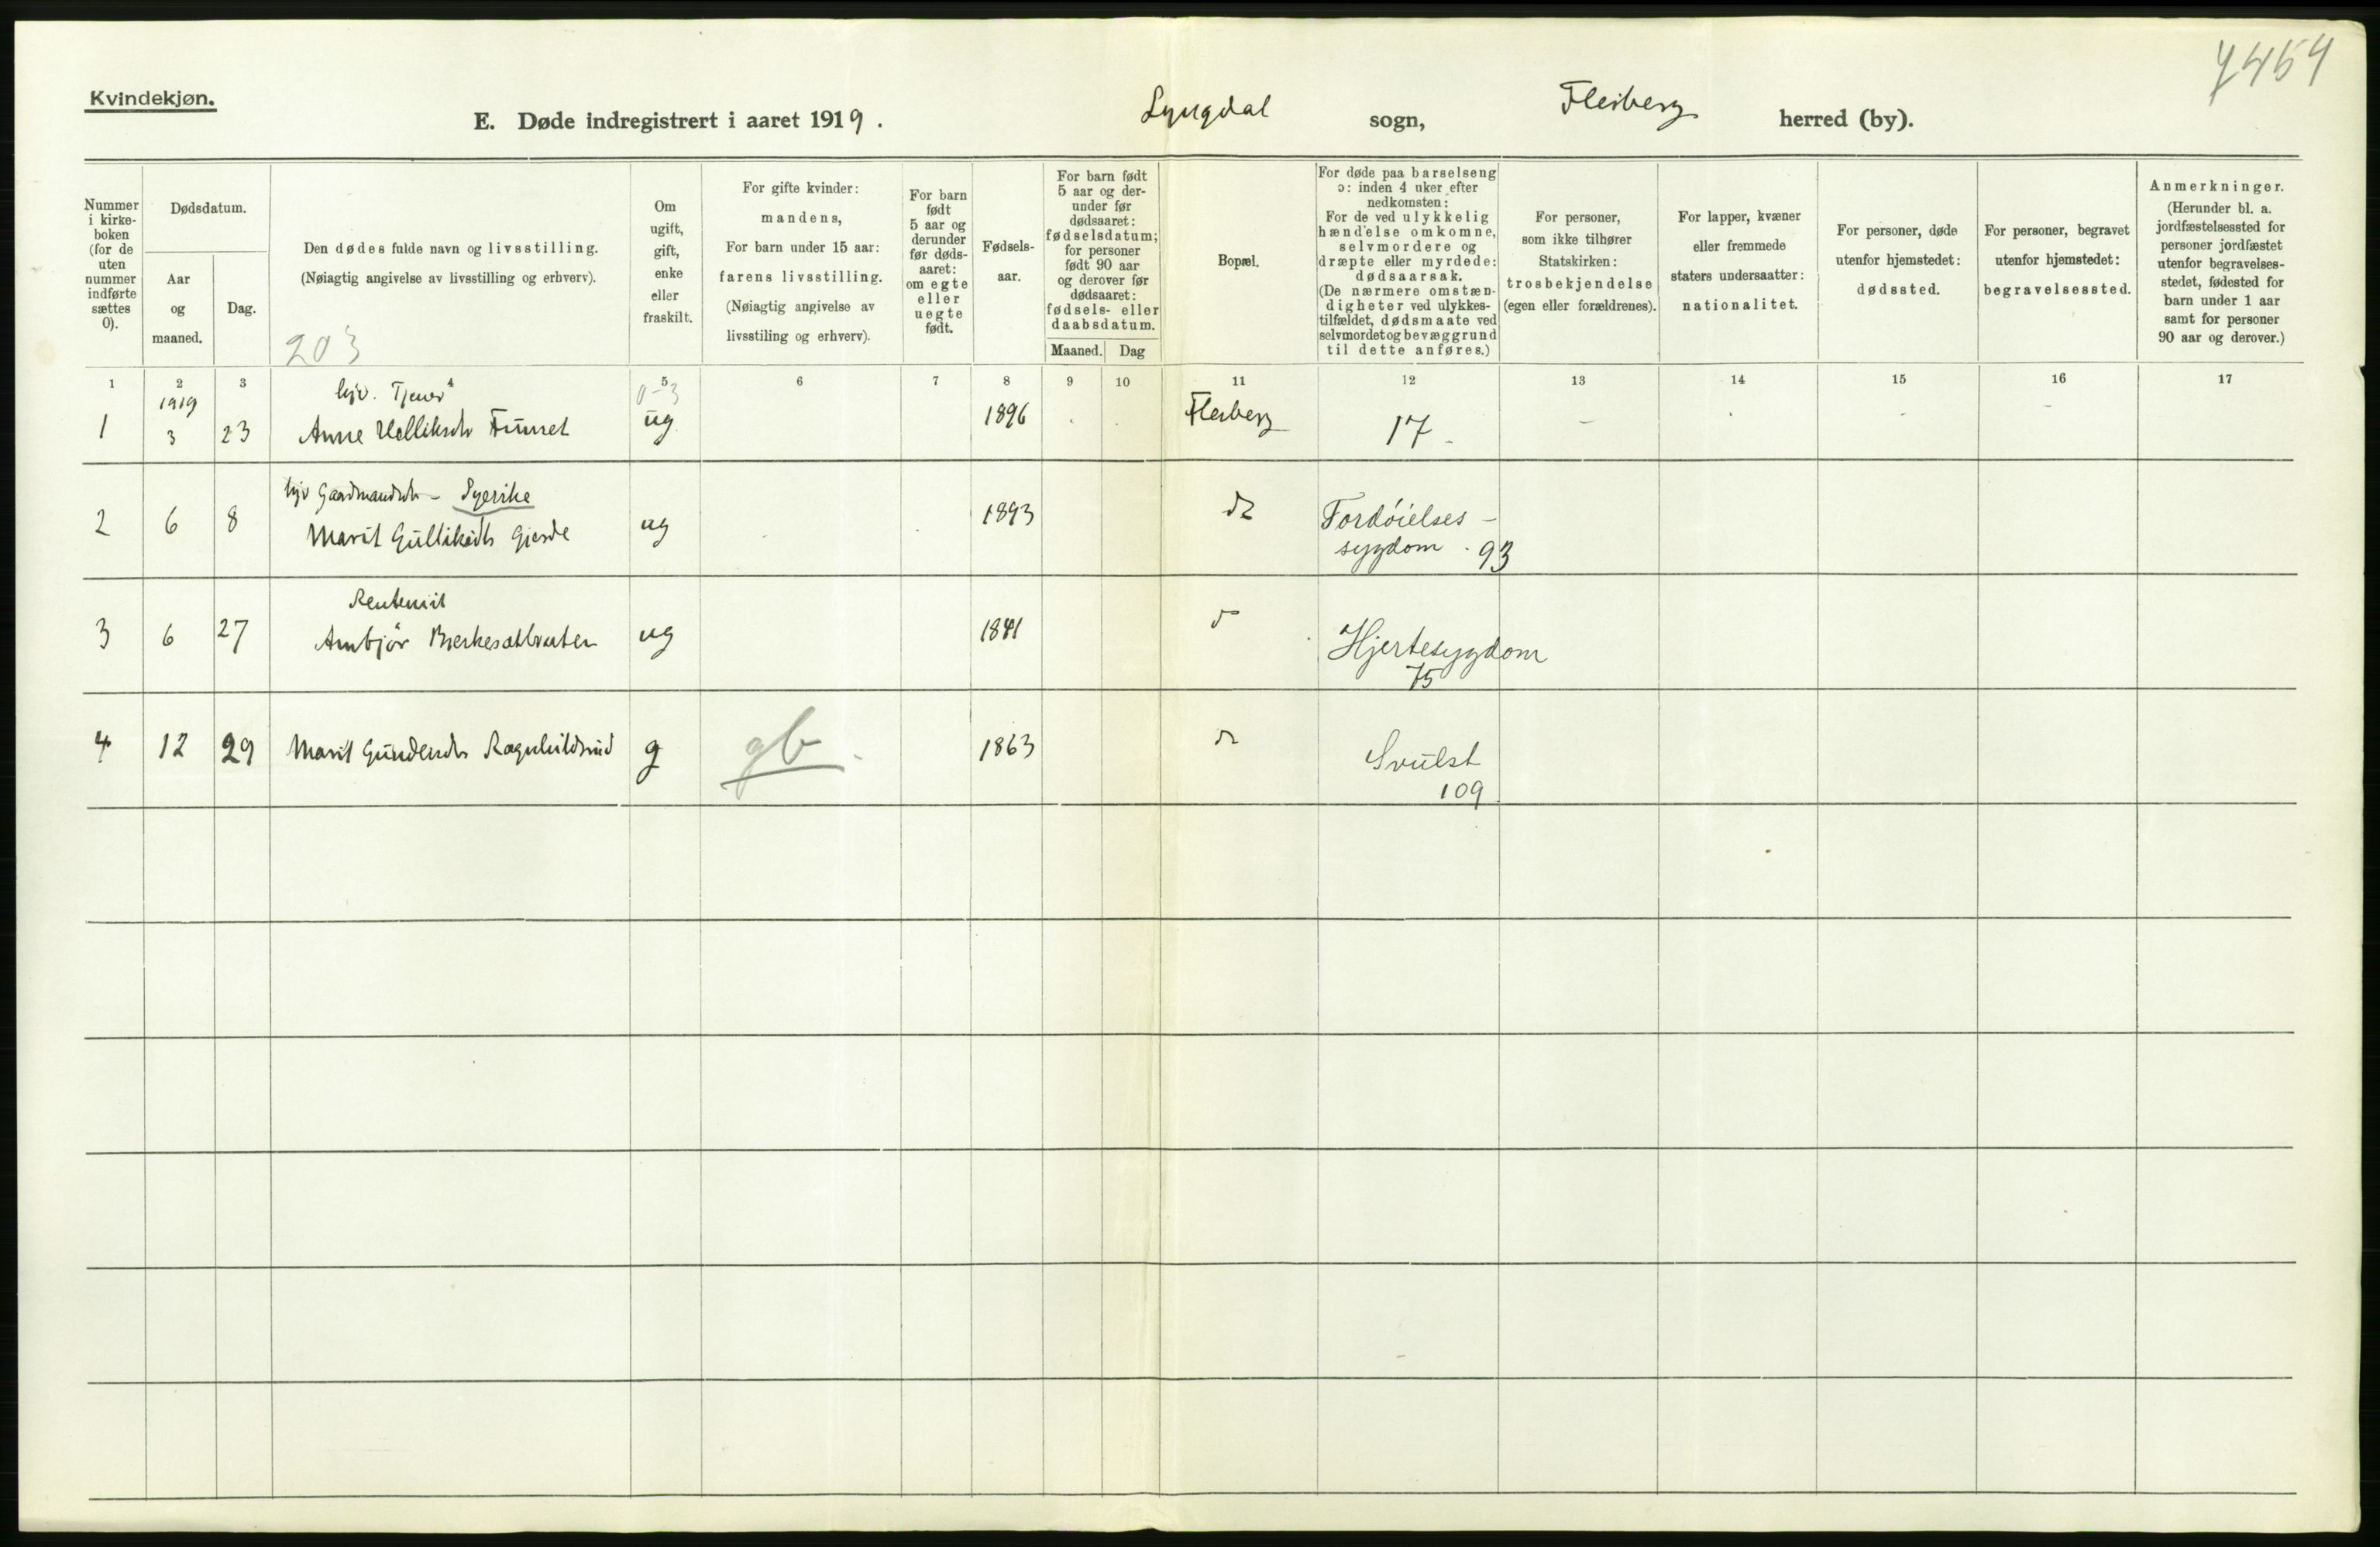 7454
Kvindekjøn.
E. Døde indregistrert i aaret 1919. Lyngdal sogn, Flesberg herred (by).
Nummer i kirkeboken (for de uten nummer indførte sættes 0).
Dødsdatum.
Aar og maaned.
Dag.
Den dødes fulde navn og livsstilling.
(Nøiagtig angivelse av livsstilling og erhverv).
203
Om ugift, gift, enke eller fraskilt.
For gifte kvinder:
mandens,
For barn under 15 aar:
farens livsstilling.
(Nøiagtig angivelse av
livsstiling og erhverv).
For barn født 5 aar og derunder før dødsaaret: om egte eller uegte født.
Fødselsaar.
For barn født 5 aar og derunder før dødsaaret: fødselsdatum; for personer født 90 aar og derover før dødsaaret: fødsels- eller daabsdatum.
Maaned. Dag
Bopæl.
For døde paa barselseng ɔ: inden 4 uker efter nedkomsten: For de ved ulykkelig hændelse omkomne, selvmordere og dræpte eller myrdede: dødsaarsak. (De nærmere omstændigheter ved ulykkestilfældet, dødsmaate ved selvmordet og bevæggrund til dette anføres.)
For personer, som ikke tilhører Statskirken: trosbekjendelse (egen eller forældrenes).
For lapper, kvæner eller fremmede staters undersaatter: nationalitet.
For personer, døde utenfor hjemstedet: dødssted.
For personer, begravet utenfor hjemstedet: begravelsessted.
Anmerkninger.
(Herunder bl. a. jordfæstelsessted for personer jordfæstet utenfor begravelsesstedet, fødested for barn under 1 aar samt for personer 90 aar og derover.)
1 2 3 4 5 6 7 8 9 10 11 12 13 14 15 16 17
1919 hjv. Tjener 0-3
1 3 23 Anne Helliksdtr Furuset ug 1896 Flesberg 17 -
hjv Gaardmandsdtr - Syerske
2 6 8 Marit Gulliksdtr Gjerde ug 1893 do Fordøielses-
sygdom. 93
3 6 27 Ambjør ug 1841 do Hjertesygdom
75
4 12 29 Marit Gundersdtr Ragnhildsrud g gb. 1863 do Svulst
109